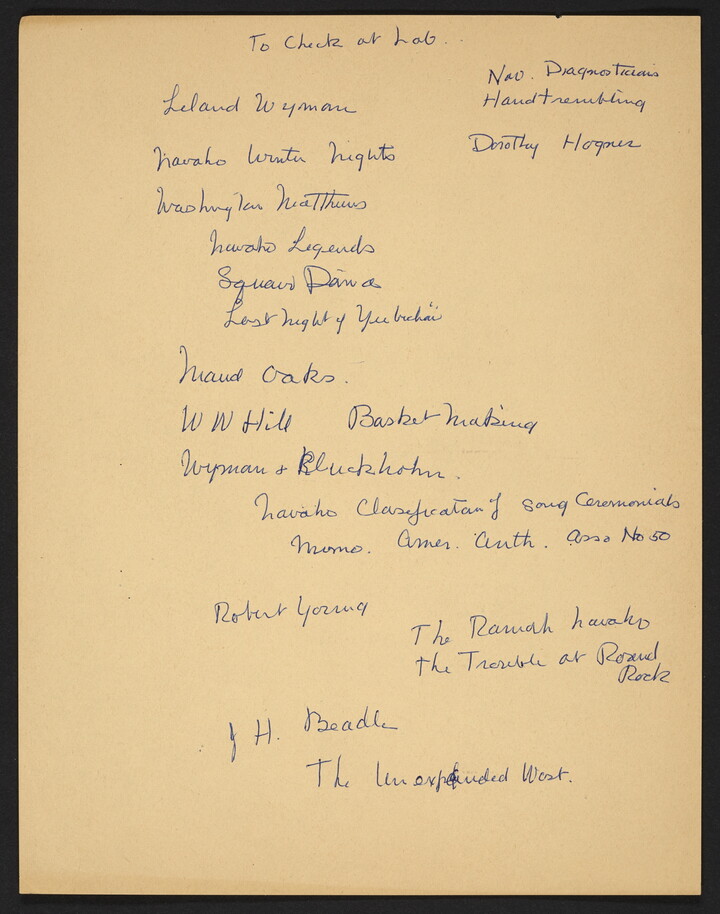 To Check at Lab..
Nav. Diagnosticians
Leland Wyman
Handtrembling
Navaho Winter Nights
Dorothy Hogner
Washington Matthews
Navaho Legends
Squaw Dance
Last Night of Yeibichai
Maud Oaks.
W W Hill Basket Making
Wyman & Kluckhohn.
Navaho Classification of Song Ceremonials
Memo. Amer. Anth. Asso No 50
Robert Young
The Ramah Navaho
The Trouble at Round
Rock
J H. Beadle
The Unexpounded West.